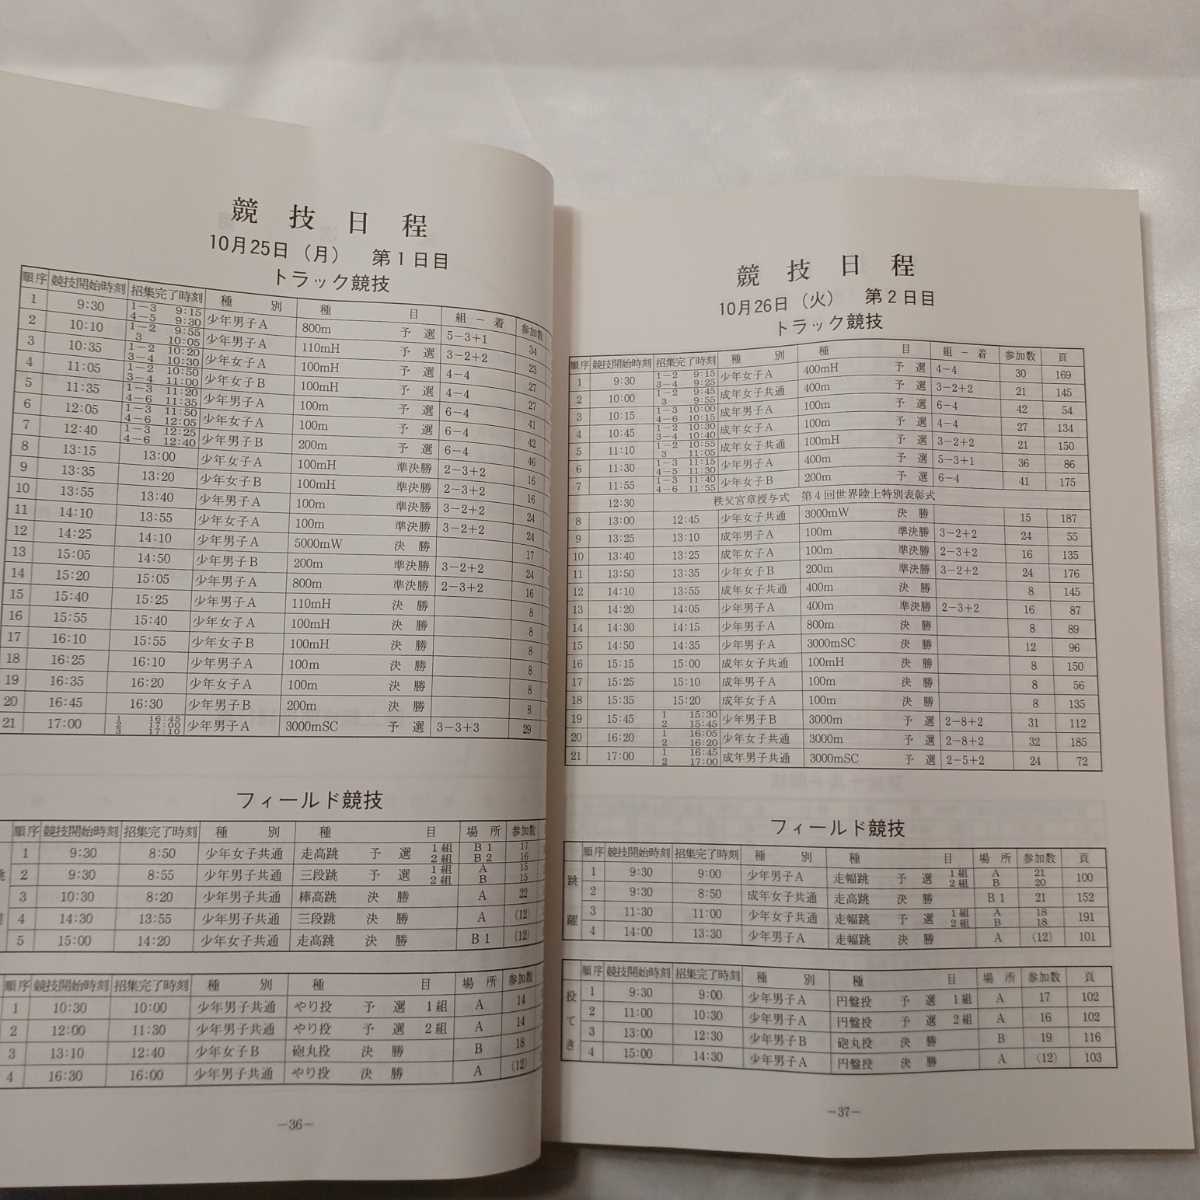 競技日程
10月25日（月）　第1日目
トラック競技
順序 競技開始時刻 招集完了時刻 種別 種目 組－着 参加数
1 9:30 1－3 9:15 4－5 9:30 少年男子A 800m 予選 5－3＋1 34
2 10:10 1－2 9:55 3 10:05 少年男子A 110mH 予選 3－2＋2 23
3 10:35 1－2 10:20 3－4 10:30 少年女子A 100mH 予選 4－4 27
4 11:05 1－2 10:50 3－4 11:00 少年女子B 100mH 予選 4－4 27
5 11:35 1－3 11:20 4－6 11:35 少年男子A 100m 予選 6－4 41
6 12:05 1－3 11:50 4－6 12:05 少年女子A 100m 予選 6－4 42
7 12:40 1－3 12:25 4－6 12:40 少年男子B 200m 予選 6－4 46
8 13:15 13:00 少年女子A 100mH 準決勝 2－3＋2 16
9 13:35 13:20 少年女子B 100mH 準決勝 2－3＋2 16
10 13:55 13:40 少年男子A 100m 準決勝 3－2＋2 24
11 14:10 13:55 少年女子A 100m 準決勝 3－2＋2 24
12 14:25 14:10 少年男子A 5000mW 決勝 17
13 15:05 14:50 少年男子B 200m 準決勝 3－2＋2 24
14 15:20 15:05 少年男子A 800m 準決勝 2－3＋2 16
15 15:40 15:25 少年男子A 110mH 決勝 8
16 15:55 15:40 少年女子A 100mH 決勝 8
17 16:10 15:55 少年女子B 100mH 決勝 8
18 16:25 16:10 少年男子A 100m 決勝 8
19 16:35 16:20 少年女子A 100m 決勝 8
20 16:45 16:30 少年男子B 200m 決勝 8
21 17:00 1 16:45 2 17:00 3 17:10 少年男子A 3000mSC 予選 3－3＋3 29
フィールド競技
順序 競技開始時刻 招集完了時刻 種別 種目 場所 参加数
1 9:30 8:50 少年女子共通 走高跳 予選 1組 B1 17 2組 B2 16
2 9:30 8:55 少年男子共通 三段跳 予選 1組 A 15 2組 B 15
3 10:30 8:20 少年男子共通 棒高跳 決勝 A 22
4 14:30 13:55 少年男子共通 三段跳 決勝 A (12)
5 15:00 14:20 少年女子共通 走高跳 決勝 B1 (12)
順序 競技開始時刻 招集完了時刻 種別 種目 場所 参加数
1 10:30 10:00 少年男子共通 やり投 予選 1組 A 14
2 12:00 11:30 少年男子共通 やり投 予選 2組 A 14
3 13:10 12:40 少年女子B 砲丸投 決勝 B 18
4 16:30 16:00 少年男子共通 やり投 決勝 A (12)
－36－
競技日程
10月26日（火）　第2日目
トラック競技
順序 競技開始時刻 招集完了時刻 種別 種目 組－着 参加数 頁
1 9:30 1－2 9:15 3－4 9:25 少年女子A 400mH 予選 4－4 30 169
2 10:00 1－2 9:45 3 9:55 成年女子共通 400m 予選 3－2＋2 21 145
3 10:15 1－3 10:00 4－6 10:15 成年男子A 100m 予選 6－4 42 54
4 10:45 1－2 10:30 3－4 10:40 成年女子A 100m 予選 4－4 27 134
5 11:10 1－2 10:55 3 11:05 成年女子共通 100mH 予選 3－2＋2 21 150
6 11:30 1－3 11:15 4－5 11:30 少年男子A 400m 予選 5－3＋1 36 86
7 11:55 1－3 11:40 4－6 11:55 少年女子B 200m 予選 6－4 41 175
12:30 秩父宮章授与式 第4回世界陸上特別表彰式
8 13:00 12:45 少年女子共通 3000mW 決勝 15 187
9 13:25 13:10 成年男子A 100m 準決勝 3－2＋2 24 55
10 13:40 13:25 成年女子A 100m 準決勝 2－3＋2 16 135
11 13:50 13:35 少年女子B 200m 準決勝 3－2＋2 24 176
12 14:10 13:55 成年女子共通 400m 決勝 8 145
13 14:20 14:05 少年男子A 400m 準決勝 2－3＋2 16 87
14 14:30 14:15 少年男子A 800m 決勝 8 89
15 14:50 14:35 少年男子A 3000mSC 決勝 12 96
16 15:15 15:00 成年女子共通 100mH 決勝 8 150
17 15:25 15:10 成年男子A 100m 決勝 8 56
18 15:35 15:20 成年女子A 100m 決勝 8 135
19 15:45 1 15:30 2 15:45 少年男子B 3000m 予選 2－8＋2 31 112
20 16:20 1 16:05 2 16:20 少年女子共通 3000m 予選 2－8＋2 32 185
21 17:00 1 16:45 2 17:00 成年男子共通 3000mSC 予選 2－5＋2 24 72
フィールド競技
跳躍
順序 競技開始時刻 招集完了時刻 種別 種目 場所 参加数 頁
1 9:30 9:00 少年男子A 走幅跳 予選 1組 A 21 2組 B 20 100
2 9:30 8:50 成年女子共通 走高跳 決勝 B1 21 152
3 11:30 11:00 少年女子共通 走幅跳 予選 1組 A 18 2組 B 18 191
4 14:00 13:30 少年男子A 走幅跳 決勝 A (12) 101
投てき
順序 競技開始時刻 招集完了時刻 種別 種目 場所 参加数 頁
1 9:30 9:00 少年男子A 円盤投 予選 1組 A 17 102
2 11:00 10:30 少年男子A 円盤投 予選 2組 A 16 102
3 13:00 12:30 少年男子B 砲丸投 決勝 B 19 116
4 15:00 14:30 少年男子A 円盤投 決勝 A (12) 103
－37－